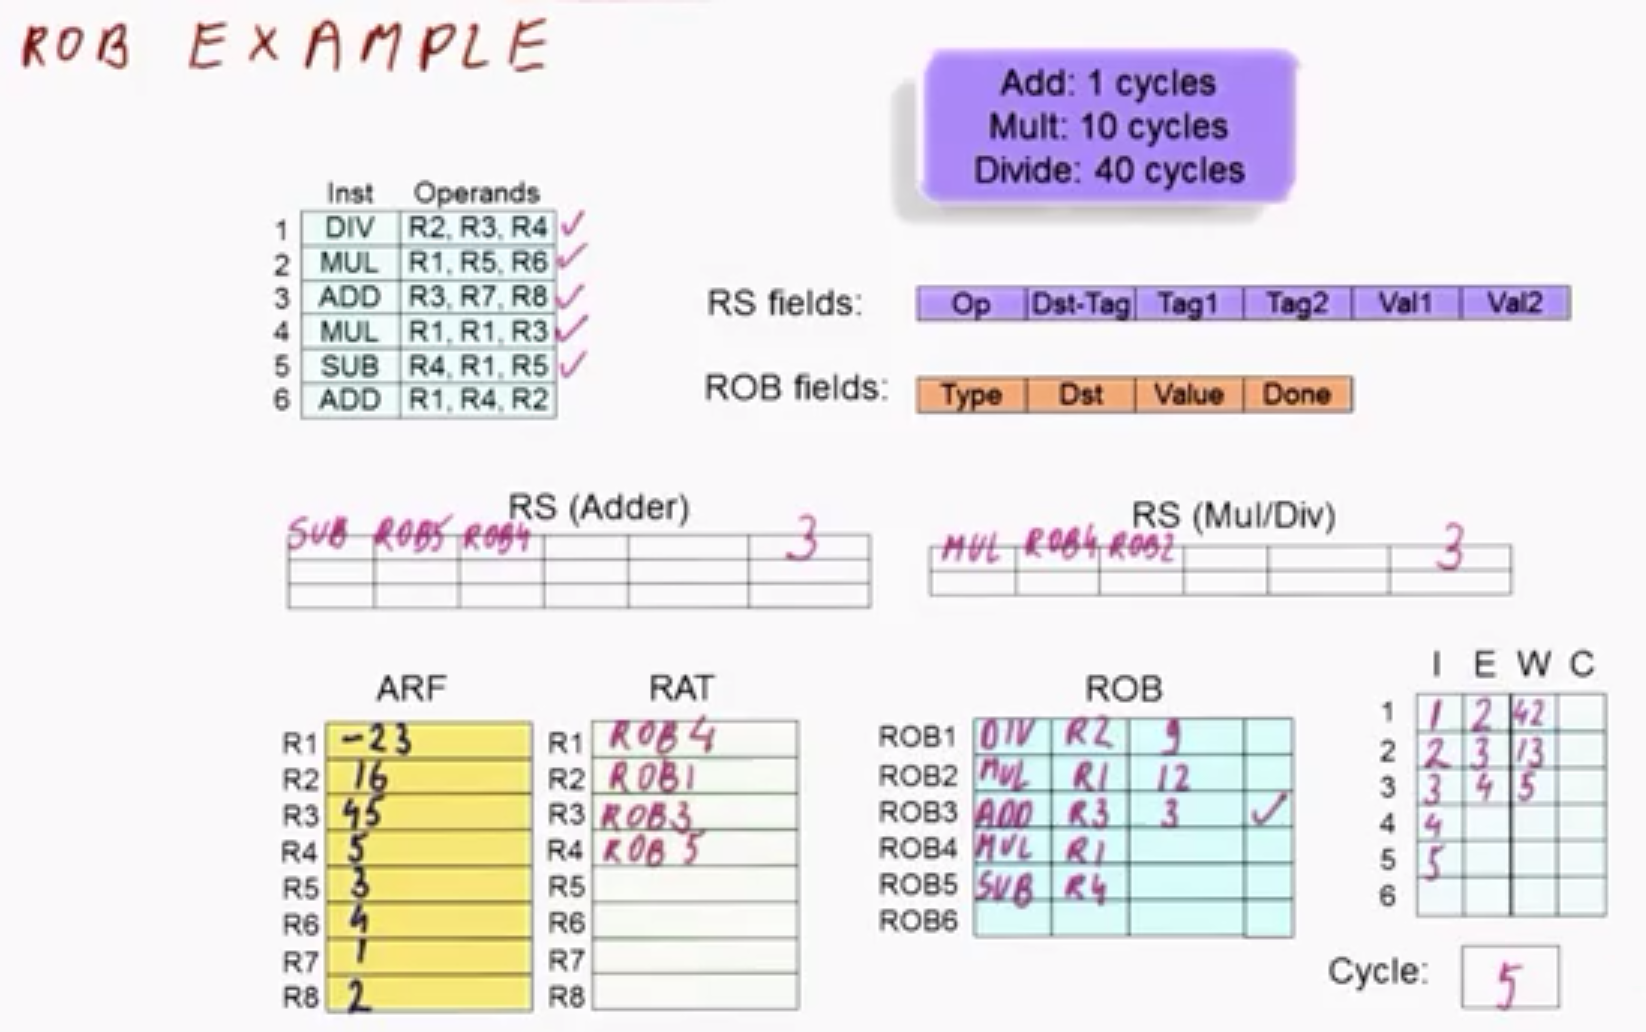 ROB EXAMPLE
Add: 1 cycles
Mult: 10 cycles
Divide: 40 cycles
Inst Operands
1 DIV R2, R3, R4 ✓
2 MUL R1, R5, R6 ✓
3 ADD R3, R7, R8 ✓
4 MUL R1, R1, R3 ✓
5 SUB R4, R1, R5 ✓
6 ADD R1, R4, R2
RS fields: Op Dst-Tag Tag1 Tag2 Val1 Val2
ROB fields: Type Dst Value Done
RS (Adder)
SUB ROB5 ROB4 3
RS (Mul/Div)
MUL ROB4 ROB2 3
ARF
R1 -23
R2 16
R3 45
R4 5
R5 3
R6 4
R7 1
R8 2
RAT
R1 ROB4
R2 ROB1
R3 ROB3
R4 ROB5
R5
R6
R7
R8
ROB
ROB1 DIV R2 9
ROB2 MUL R1 12
ROB3 ADD R3 3 ✓
ROB4 MUL R1
ROB5 SUB R4
ROB6
I E W C
1 1 2 42
2 2 3 13
3 3 4 5
4 4
5 5
6
Cycle: 5